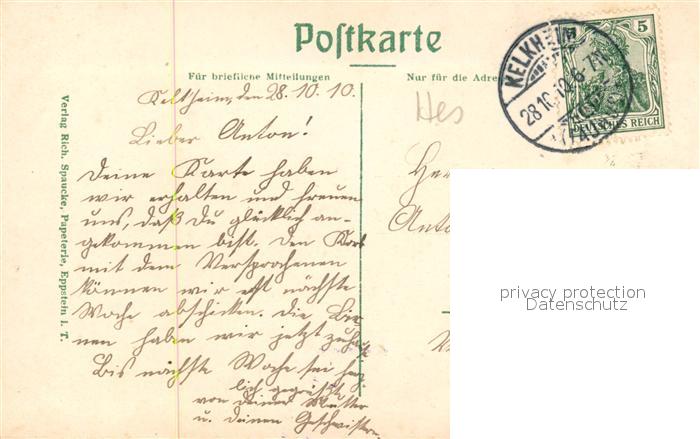 Postkarte
Für briefliche Mitteilungen
Nur für die Adre
Verlag Rich. Spaucke, Papeterie, Eppstein i. T.
KELKHEIM
28.10.10.6-7N
(TAUNUS)
5
DEUTSCHES REICH
Hes
Kelkheim, den 28.10.10.
Lieber Anton!
Deine Karte haben
wir erhalten und freuen
uns, daß Du glücklich an-
gekommen bist. Den Korb
mit dem Versprochenen
können wir erst nächste
Woche abschicken. Die Bir-
nen haben wir jetzt
Bis nächste Woche sei herz
lich gegrüßt
von Deiner Mutter
u. deinen Geschwistern
Her
Anto
privacy protection
Datenschutz